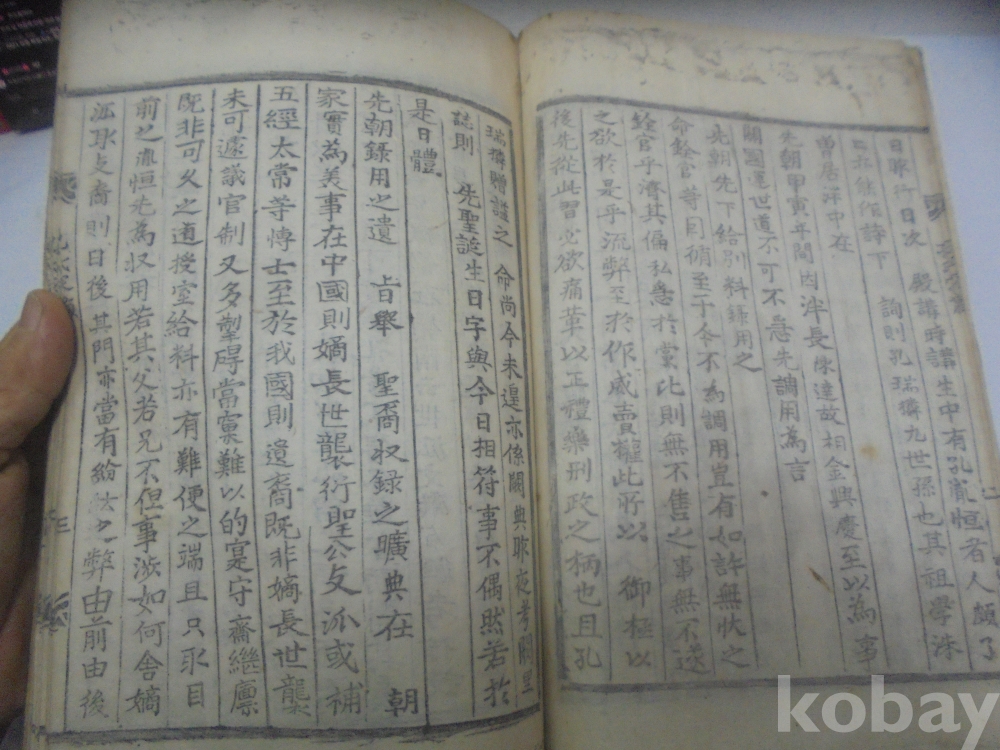 日昨行日次 殿講時講生中有孔胤恒者人頗了
能作詩下 詢則孔瑞獜九世孫也其祖學洙
曾居泮中在
先朝甲寅年間因泮長 達故相金興慶至以為事
關國運世道不可不 急先調用為言
先朝先下給別料錄用之
命銓官等目稍至于今不為調用豈有如許無狀之
銓官乎濟其偏私急於黨比則無不售之事無不遂
之欲於是乎流弊至於作威賣權此所以 御極以
後先從此習必欲痛革以正禮樂刑政之柄也且孔
瑞獜贈諡之 命尚今未遑亦係闕典昨夜考闕里
誌則 先聖誕生日字與今日相符事不偶然若於
是日體
先朝錄用之遺 旨舉 聖裔收錄之曠典在 朝
家實為美事在中國則嫡長世襲衍聖公支派或補
五經太常等博士至於我國則遺裔既非嫡長世襲
未可遽議官制又多掣碍當稟難以的定守齋繼廩
既非可久之道授室給料亦有難便之端且只取目
前之 恒先為収用若其父若兄不但事涉如何舍嫡
派取支裔則日後其門亦當有紛 之弊由前由後
三
kobay